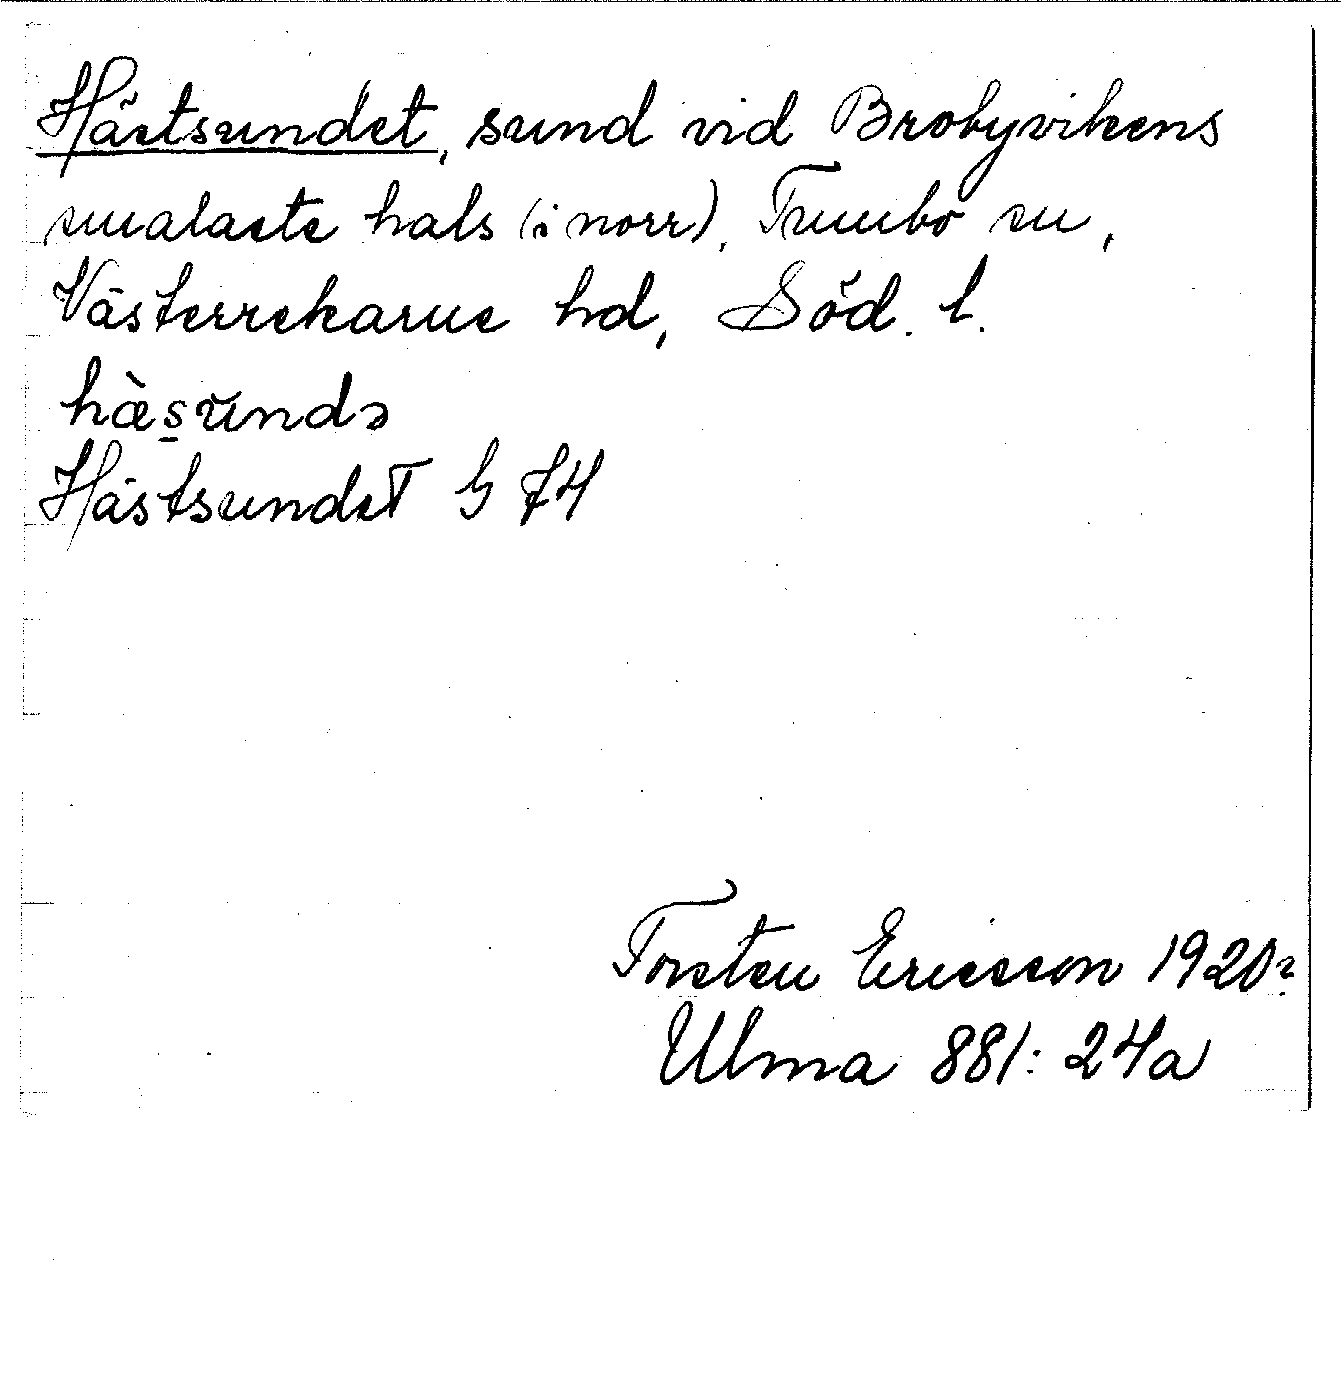 Hästsundet, sund vid Brobyvikens
smalaste hals (i norr), Trumbo sn,
Västerrekarne hd, Söd. l.
hæ̀sundə
Hästsundet G 74
Torsten Ericsson 1920?
Ulma 881: 24a